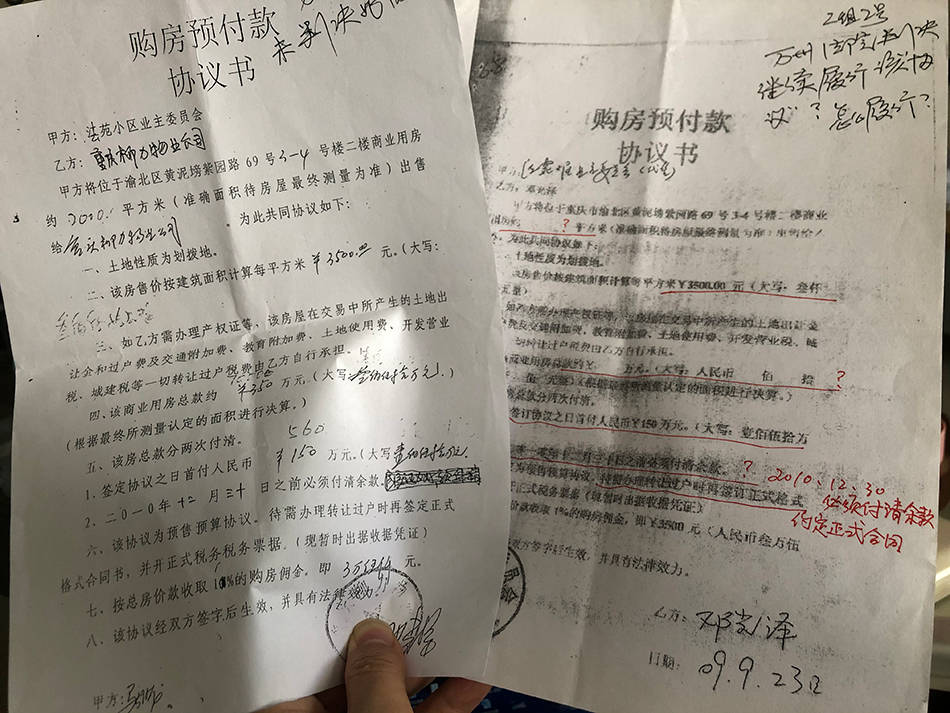 购房预付款
协议书
甲方：法苑小区业主委员会
乙方：重庆柳力物业公司
甲方将位于渝北区黄泥塝紫园路69号3-4号楼二楼商业用房
约2000平方米（准确面积待房屋最终测量为准）出售
给重庆柳力物业公司 为此共同协议如下：
一、土地性质为划拨地。
二、该房售价按建筑面积计算每平方米￥3500.00元。（大写：
三、如乙方需办理产权证等，该房屋在交易中所产生的土地出
让金和过户费及交通附加费、教育附加费、土地使用费、开发营业
税、城建税等一切转让过户税费由乙方自行承担。
四、该商业用房总款约 ￥350万元。（大写：
（根据最终所测量认定的面积进行决算。）
五、该房总款分两次付清。
560
1、签定协议之日首付人民币￥150万元。（大写壹佰伍拾万元
2、二0一0年十二月三十日之前必须付清余款。
六、该协议为预售预算协议。待需办理转让过户时再签定正式
格式合同书，并开正式税务税务票据。（现暂时出据收据凭证）
七、按总房价款收取1%的购房佣金。即 元。
八、该协议经双方签字后生效，并具有法律效力。
甲方：
2组2号
万州法院判决
继续履行该协
议？怎么履行？
购房预付款
协议书
乙方：邓光泽
甲方将位于重庆市渝北区黄泥塝紫园路69号3-4号楼二楼商业
？平方米（准确面积待房屋最终测量为准）出售给
为此共同协议如下：
土地性质为划拨地。
该房售价按建筑面积计算每平方米￥3500.00元（大写：叁仟
如乙方需办理产权证等，该房屋在交易中所产生的土地出让金
费及交通附加费、教育附加费、土地使用费、开发营业税、城
切转让过户税费由乙方自行承担。
商业用房总款约￥ 万元。（大写：人民币 佰 拾 ？
（根据最终所测量认定的面积进行决算。）
总款分两次付清。
签订协议之日首付人民币￥150万元。（大写：壹佰伍拾万
年 月三十日之前必须付清余款。 ？ 2010.12.30
必须付清余款
约定正式合同
为预售预算协议。待需办理转让过户时再签订正式格式
开正式税务票据（现暂时出据收据凭证）
价款收取1%的购房佣金，即￥3500元（人民币叁万伍
双方签字后生效，并具有法律效力。
乙方：邓光泽
日期：09.9.23日